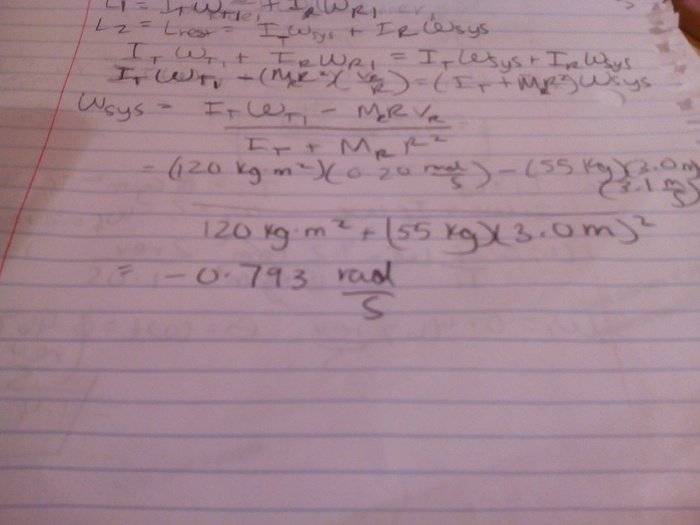 L1 = ITωT + IRωR1
L2 = Lrest = ITωsys + IRωsys
ITωT1 + IRωR1 = ITωsys + IRωsys
ITωT1 - (MRR²)(VR/R) = (IT + MRR²)ωsys
ωsys = ITωT1 - MRRVR
IT + MRR²
= (120 kg·m²)(0.20 rad/s) - (55 kg)(3.0m)
(3.1 m/s)
120 kg·m² + (55 kg)(3.0m)²
= -0.793 rad/s